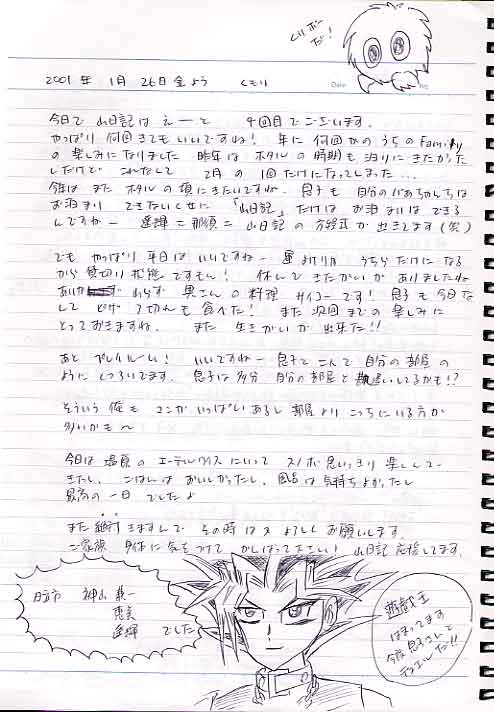 クリボーだ!
2001年 1月 26日 金よう くもり
Date
今日で 山日記は えーと 4回目でございます.
やっぱり何回きてもいいですね! 年に何回かのうちのfamily
の楽しみになりました 昨年は ホタルの時期も泊りにきたかった
しだけど 2月の1回だけになってしまった…
今年は また ホタルの頃にきたいですね. 息子も自分のばあちゃんちは
お泊まり できないくせに 「山日記」だけは お泊まりはできる
んですかー 遥輝=那須=山日記の方程式が出きてます(笑)
でも やっぱり平日はいいですねー うちらだけになる
から 貸切り状態ですもん! 休んできたかいがありましたね
あいかわらず 奥さんの料理 サイコーです! 息子も今日な
んて 7切れも食べた! また次回までの楽しみに
とっておきますね. また 生きがいが出来た!!
あと プレイルーム! いいですねー 息子と二人で自分の部屋の
ように くつろいでます. 息子は多分 自分の部屋と 違いしてるかも!?
そういう俺も マンガいっぱいあるし 部屋より こっちにいる方が
多いかも〜
今日は塩原の にいって スノボ思いっきり楽しんで
きたし. ごはんは おいしかったし. 風呂は気持ちよかったし
最高の一日でした♪
また絶対きますんで その時はヨロしくお願いします.
ご家族 身体に気をつけて がんばって下さい! 山日記応援してます.
日立市 神山
恵美
遥輝 でした
遊戯王
はまってます
今度息子さんと
デュエルだ!!